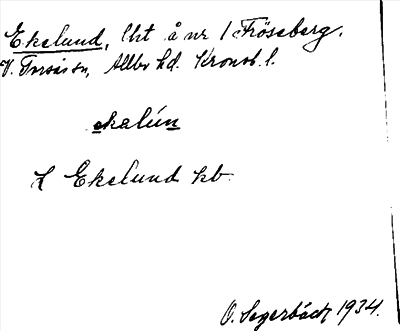 Ekelund, lht å nr 1 Fröseberg.
V. Torsås sn, Allbo hd. Kronob. l.
ekalún
Ekelund kb.
O. Segerbäck 1934.